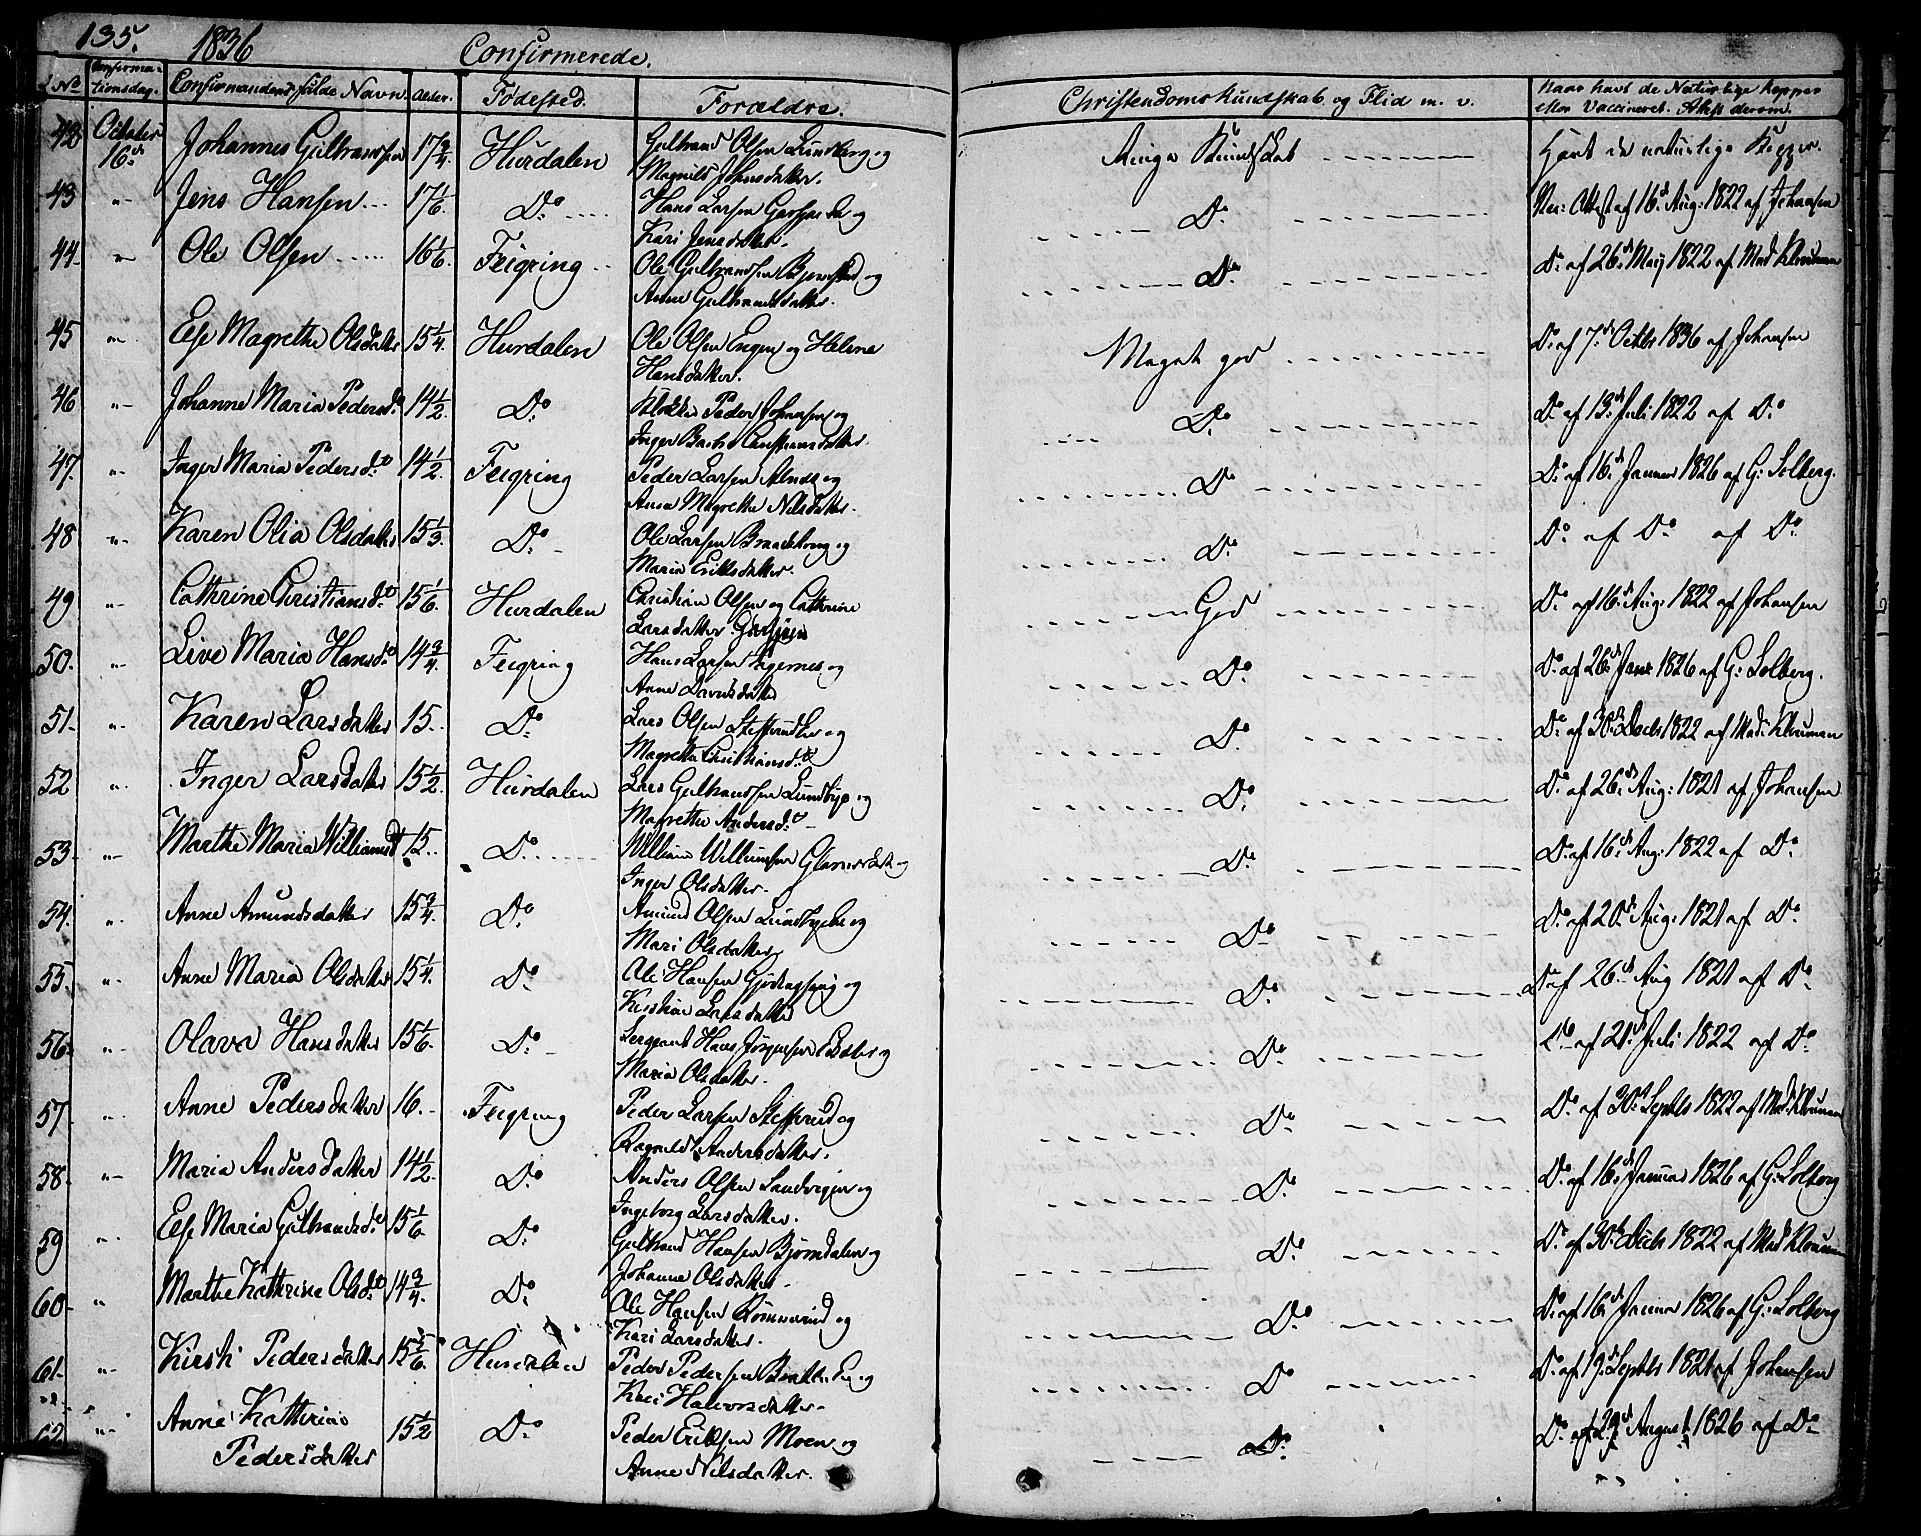 135. 1836 Confirmerede.
No Confirmationsdag. Confirmandens fulde Navn. Alder. Fødested. Forældre. Christendomskundskab og Flid m. v. Naar havt de Naturlige Kopper eller Vaccineret. Attest derom.
42 October 16de Johannes Gulbrandsen 17 3/4. Hurdalen Gulbrand Olsen og
Magnild Johansdatter. Kundskab Havt de naturlige Kopper.
43 " Jens Hansen 17 1/6. Do Hans Larsen og
Kari Jensdatter. Do Attest af 16de Aug: 1822 af Johansen
44 " Ole Olsen 16 1/6. Feigring Ole Gulbrandsen og
Anne Gulbrandsdatter. Do Do af 26de May 1822 af Mad Klouman
45 " Else Magrethe Olsdatter 15 1/4. Hurdalen Ole Olsen Engen og Helene
Hansdatter. Meget god Do af 7de Octbr 1836 af Johansen
46 " Johanne Maria Pedersd. 14 1/2. Do Klokker Peder Johansen og
Inger Christiansdatter. Do Do af 13de Juli 1822 af Do
47 " Inger Maria Pedersd. 14 1/2 Feigring Peder Larsen og
Anna Magrethe Nilsdatter. Do Do af 16de Januar 1826 af G: Solberg.
48 " Karen Olia Olsdatter 15 1/3. Do Ole Larsen og
Maria Eriksdatter. Do Do af Do af Do
49 " Cathrine Christiansd. 15 1/6. Hurdalen Christian Olsen og Cathrine
Larsdatter God Do af 16de Aug: 1822 af Johansen
50. " Live Maria Hansd. 14 3/4. Feigring Hans Larsen og
Anne Larsdatter Do Do af 26de Janr 1826 af G: Solberg.
51. " Karen Larsdatter 15. Do Lars Olsen og
Magrethe Christiansd. Do Do af 30te Decbr 1822 af Mad: Klouman
52 " Inger Larsdatter 15 1/2. Hurdalen Lars Gulbrandsen og
Magrethe Andersd. Do Do af 26de Aug: 1821 af Johansen
53. " Marthe Maria Williamsd 15. Do William Willumsen og
Inger Olsdatter. Do Do af 16de Aug: 1822 af Do
54. " Anne Amundsdatter 15 3/4. Do Amund Olsen og
Mari Olsdatter. Do Do af 20de Aug: 1821 af Do
55. " Anne Maria Olsdatter 15 1/4. Do Ole Hansen og
Larsdatter Do Do af 26de Aug 1821 af Do
56. " Olava Hansdatter 15 1/6. Do Sergeant Hans Jørgensen og
Maria Olsdatter. Do Do af 21de Juli 1822 af Do
57 " Anne Pedersdatter 16. Feigring Peder Larsen og
Ragnild Andersdatter. Do Do af 30te Septbr 1822 af Mad. Klouman
58. " Maria Andersdatter 14 1/2. Do Anders Olsen Sandvigen og
Ingeborg Larsdatter. Do Do af 16de Januar 1826 af G: Solberg
59 " Else Maria Gulbrandsd. 15 1/6. Do Gulbrand Hansen Bjørndalen og
Johanne Olsdatter. Do Do af 30te Decbr 1822 af Mad Klouman
60 " Marthe Kathrine Olsd. 14 3/4. Do Ole Hansen og
Kari Larsdatter. Do Do af 16de Januar 1826 af G: Solberg
61. " Kirsti Pedersdatter 15 5/6. Hurdalen Peder Pedersen og
Kari Halvorsdatter. Do Do af 19de Septbr 1821 af Johansen
62 " Anne Kathrine
Pedersdatter 15 1/2 Do Peder Eriksen Moen og
Anne Nilsdatter. Do Do af 29de August 1826 af Do